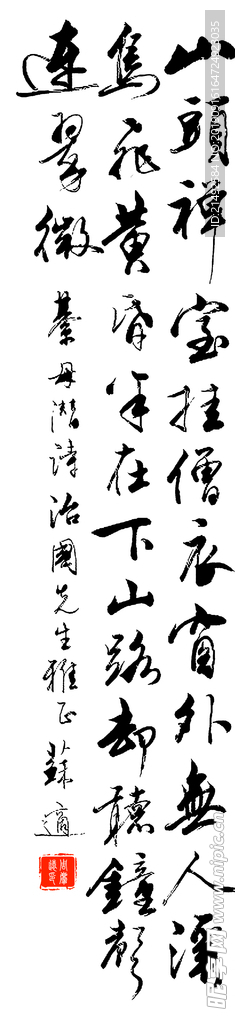 山頭禪室挂僧衣窗外無人溪
鳥飛黃昏半在下山路却聽鐘聲
連翠微
綦毋潛詩治國先生雅正 蘇適
昵图网 www.nipic.com